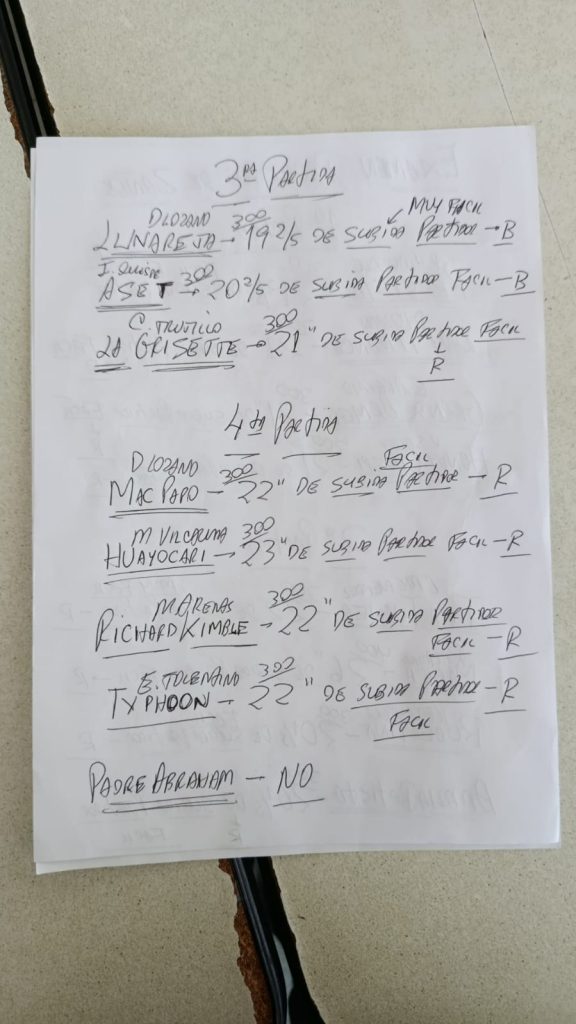 3ra Partida
D Lozano 300 Muy Facil
Lunareja - 19 2/5 de subida Partidor - B
I. Quispe 300
Aset - 20 2/5 de subida Partidor Facil - B
C. Trujillo 300
La Grisette - 21" de subida Partidor Facil
R
4ta Partida
D Lozano 300 Facil
Mac Papo - 22" de subida Partidor - R
M Vilcarima 300
Huayocari - 23" de subida Partidor Facil - R
M Arenas 300
Richard Kimble - 22" de subida Partidor
Facil - R
E. Tolentino 300
Typhoon - 22" de subida Partidor - R
Facil
Padre Abraham - NO